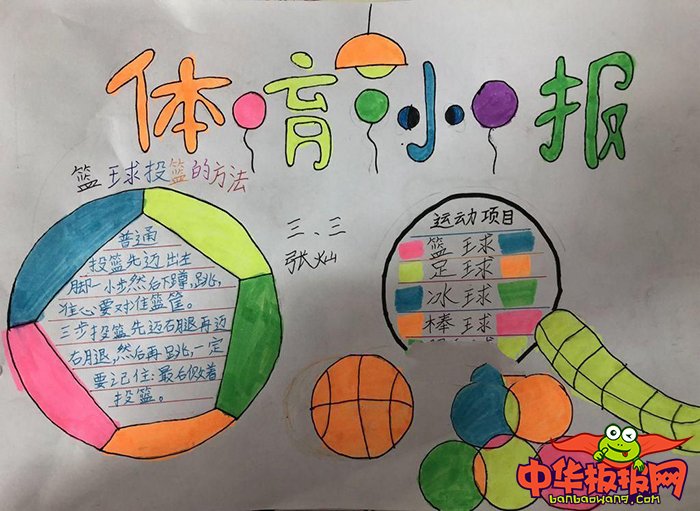 体育小报
篮球投篮的方法
三、三
张灿
普通
投篮先迈出左
脚一小步然后下蹲,跳,
住心要对准篮筐。
三步投篮先迈右腿再迈
右腿,然后再跳,一定
要记住:最后做着
投篮。
运动项目
篮球
足球
冰球
棒球
中华板报网
banbaowang.com